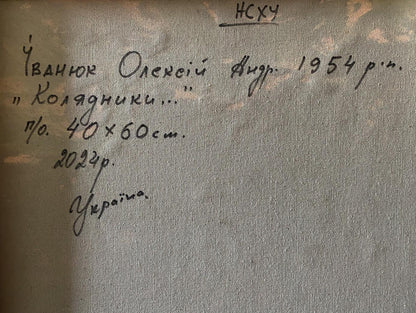 НСХУ
Іванюк Олексій Андр. 1954 р.н.
„Колядники..."
п/о. 40×60см.
2024р.
Україна.